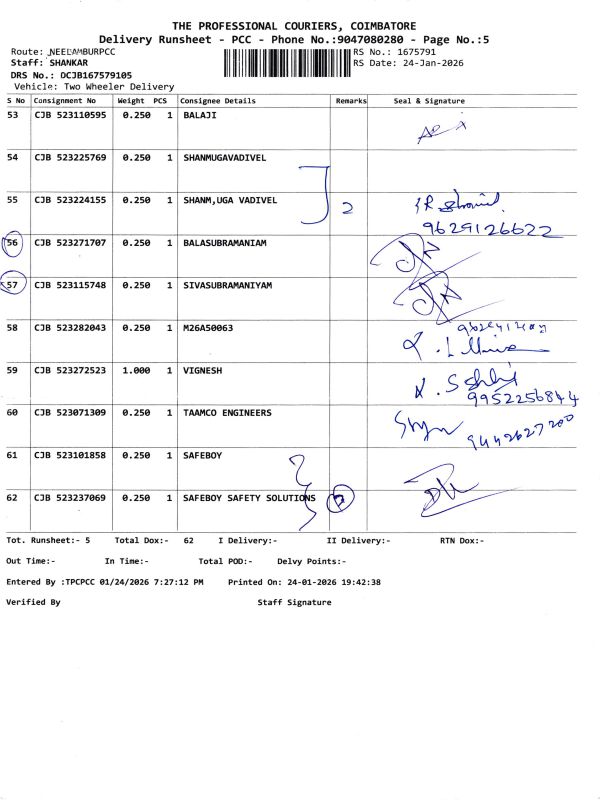 THE PROFESSIONAL COURIERS, COIMBATORE
Delivery Runsheet - PCC - Phone No.:9047080280 - Page No.:5
Route: NEELAMBURPCC RS No.: 1675791
Staff: SHANKAR RS Date: 24-Jan-2026
DRS No.: DCJB167579105
Vehicle: Two Wheeler Delivery
S No Consignment No Weight PCS Consignee Details Remarks Seal & Signature
53 CJB 523110595 0.250 1 BALAJI
54 CJB 523225769 0.250 1 SHANMUGAVADIVEL
55 CJB 523224155 0.250 1 SHANM,UGA VADIVEL 2
9629126622
56 CJB 523271707 0.250 1 BALASUBRAMANIAM
57 CJB 523115748 0.250 1 SIVASUBRAMANIYAM
58 CJB 523282043 0.250 1 M26A50063
59 CJB 523272523 1.000 1 VIGNESH
9952256844
60 CJB 523071309 0.250 1 TAAMCO ENGINEERS
9442627200
61 CJB 523101858 0.250 1 SAFEBOY
62 CJB 523237069 0.250 1 SAFEBOY SAFETY SOLUTIONS
Tot. Runsheet:- 5 Total Dox:- 62 I Delivery:- II Delivery:- RTN Dox:-
Out Time:- In Time:- Total POD:- Delvy Points:-
Entered By :TPCPCC 01/24/2026 7:27:12 PM Printed On: 24-01-2026 19:42:38
Verified By Staff Signature